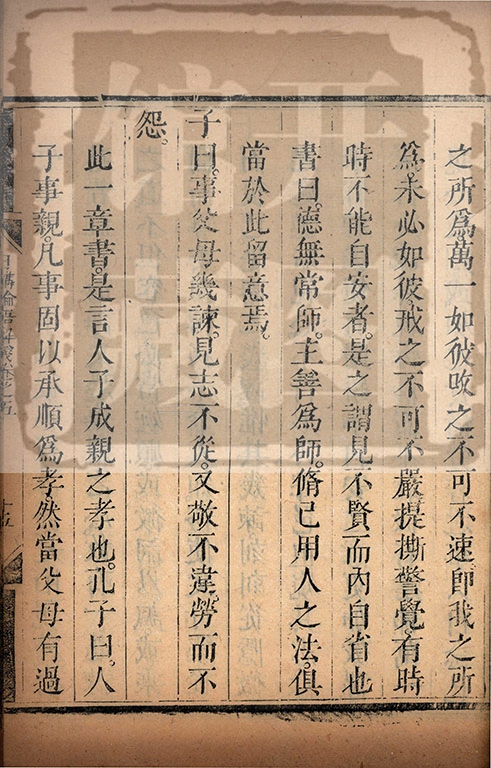 之所爲萬一如彼改之不可不速即我之所
爲未必如彼戒之不可不嚴提撕警覺有時
時不能自安者是之謂見不賢而內自省也
書曰德無常師主善爲師脩己用人之法俱
當於此留意焉
子曰事父母幾諫見志不從又敬不違勞而不
怨
此一章書是言人子成親之孝也孔子曰人
子事親凡事固以承順爲孝然當父母有過